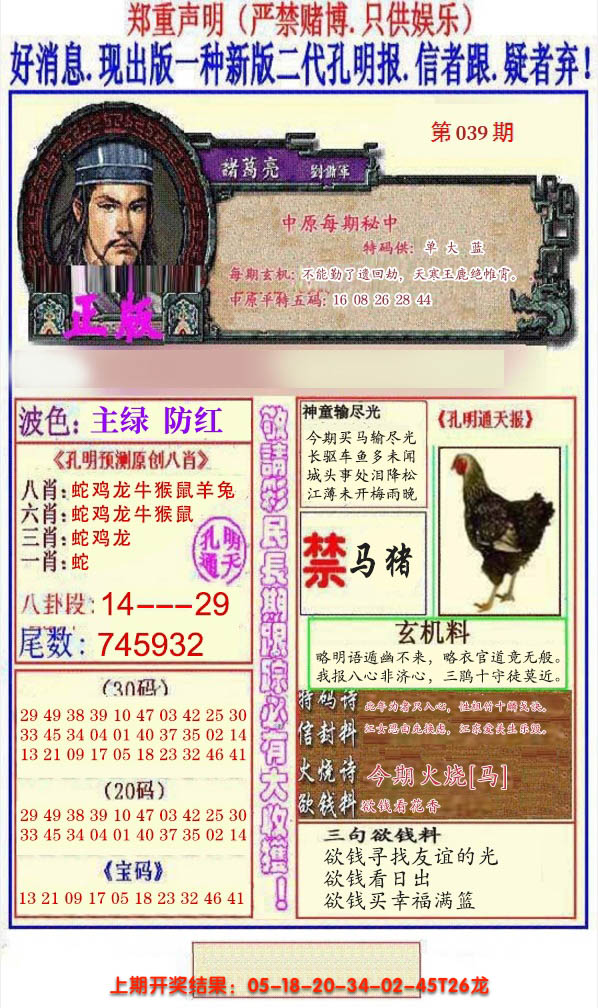 郑重声明（严禁赌博.只供娱乐）
好消息.现出版一种新版二代孔明报.信者跟.疑者弃!
第039期
諸葛亮 劉備軍
中原每期秘中
特码供：单 大 蓝
每期玄机：不能勤了遗回劫，天寒王鹿绝帷霄。
中原平特五码：16 08 26 28 44
正版
波色：主绿 防红
《孔明预测原创八肖》
八肖：蛇鸡龙牛猴鼠羊兔
六肖：蛇鸡龙牛猴鼠
三肖：蛇鸡龙
一肖：蛇
孔明通天
八卦段：14---29
尾数：745932
（30码）
29 49 38 39 10 47 03 42 25 30
33 45 34 04 01 40 37 35 02 14
13 21 09 17 05 18 23 32 46 41
（20码）
29 49 38 39 10 47 03 42 25 30
33 45 34 04 01 40 37 35 02 14
《宝码》
13 21 09 17 05 18 23 32 46 41
敬請彩民長期跟踪必有大收獲！
神童输尽光
今期买马输尽光
长驱车鱼多未闻
城头事处泪降松
江薄未开梅雨晚
《孔明通天报》
禁 马猪
玄机料
略明语遁幽不来，略衣官道竟无般。
我报八心非济心，三鹍十守徒莫近。
特码诗
信封料
火烧诗 今期火烧[马]
欲钱料 欲钱看花香
三句欲钱料
欲钱寻找友谊的光
欲钱看日出
欲钱买幸福满篮
上期开奖结果：05-18-20-34-02-45T26龙